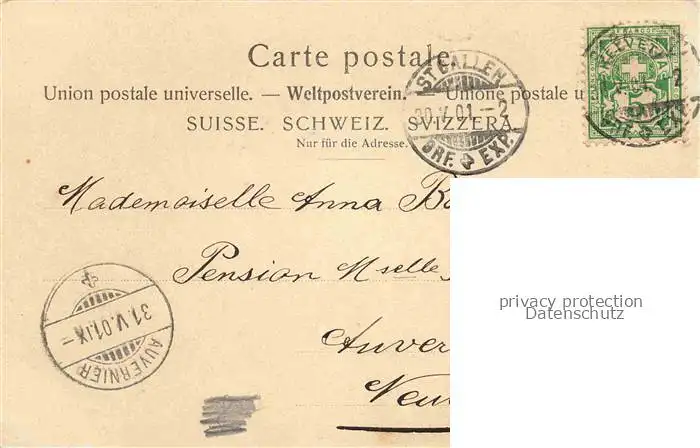 Carte postale.
Union postale universelle. — Weltpostverein. — Unione postale u
SUISSE. SCHWEIZ. SVIZZERA.
Nur für die Adresse.
ST. GALLEN
30.V.01.–2
BRF. EXP.
HELVETIA
5
Mademoiselle Anna
Pension Mselle
Auver
Neu
31.V.01.IX–
AUVERNIER
privacy protection
Datenschutz